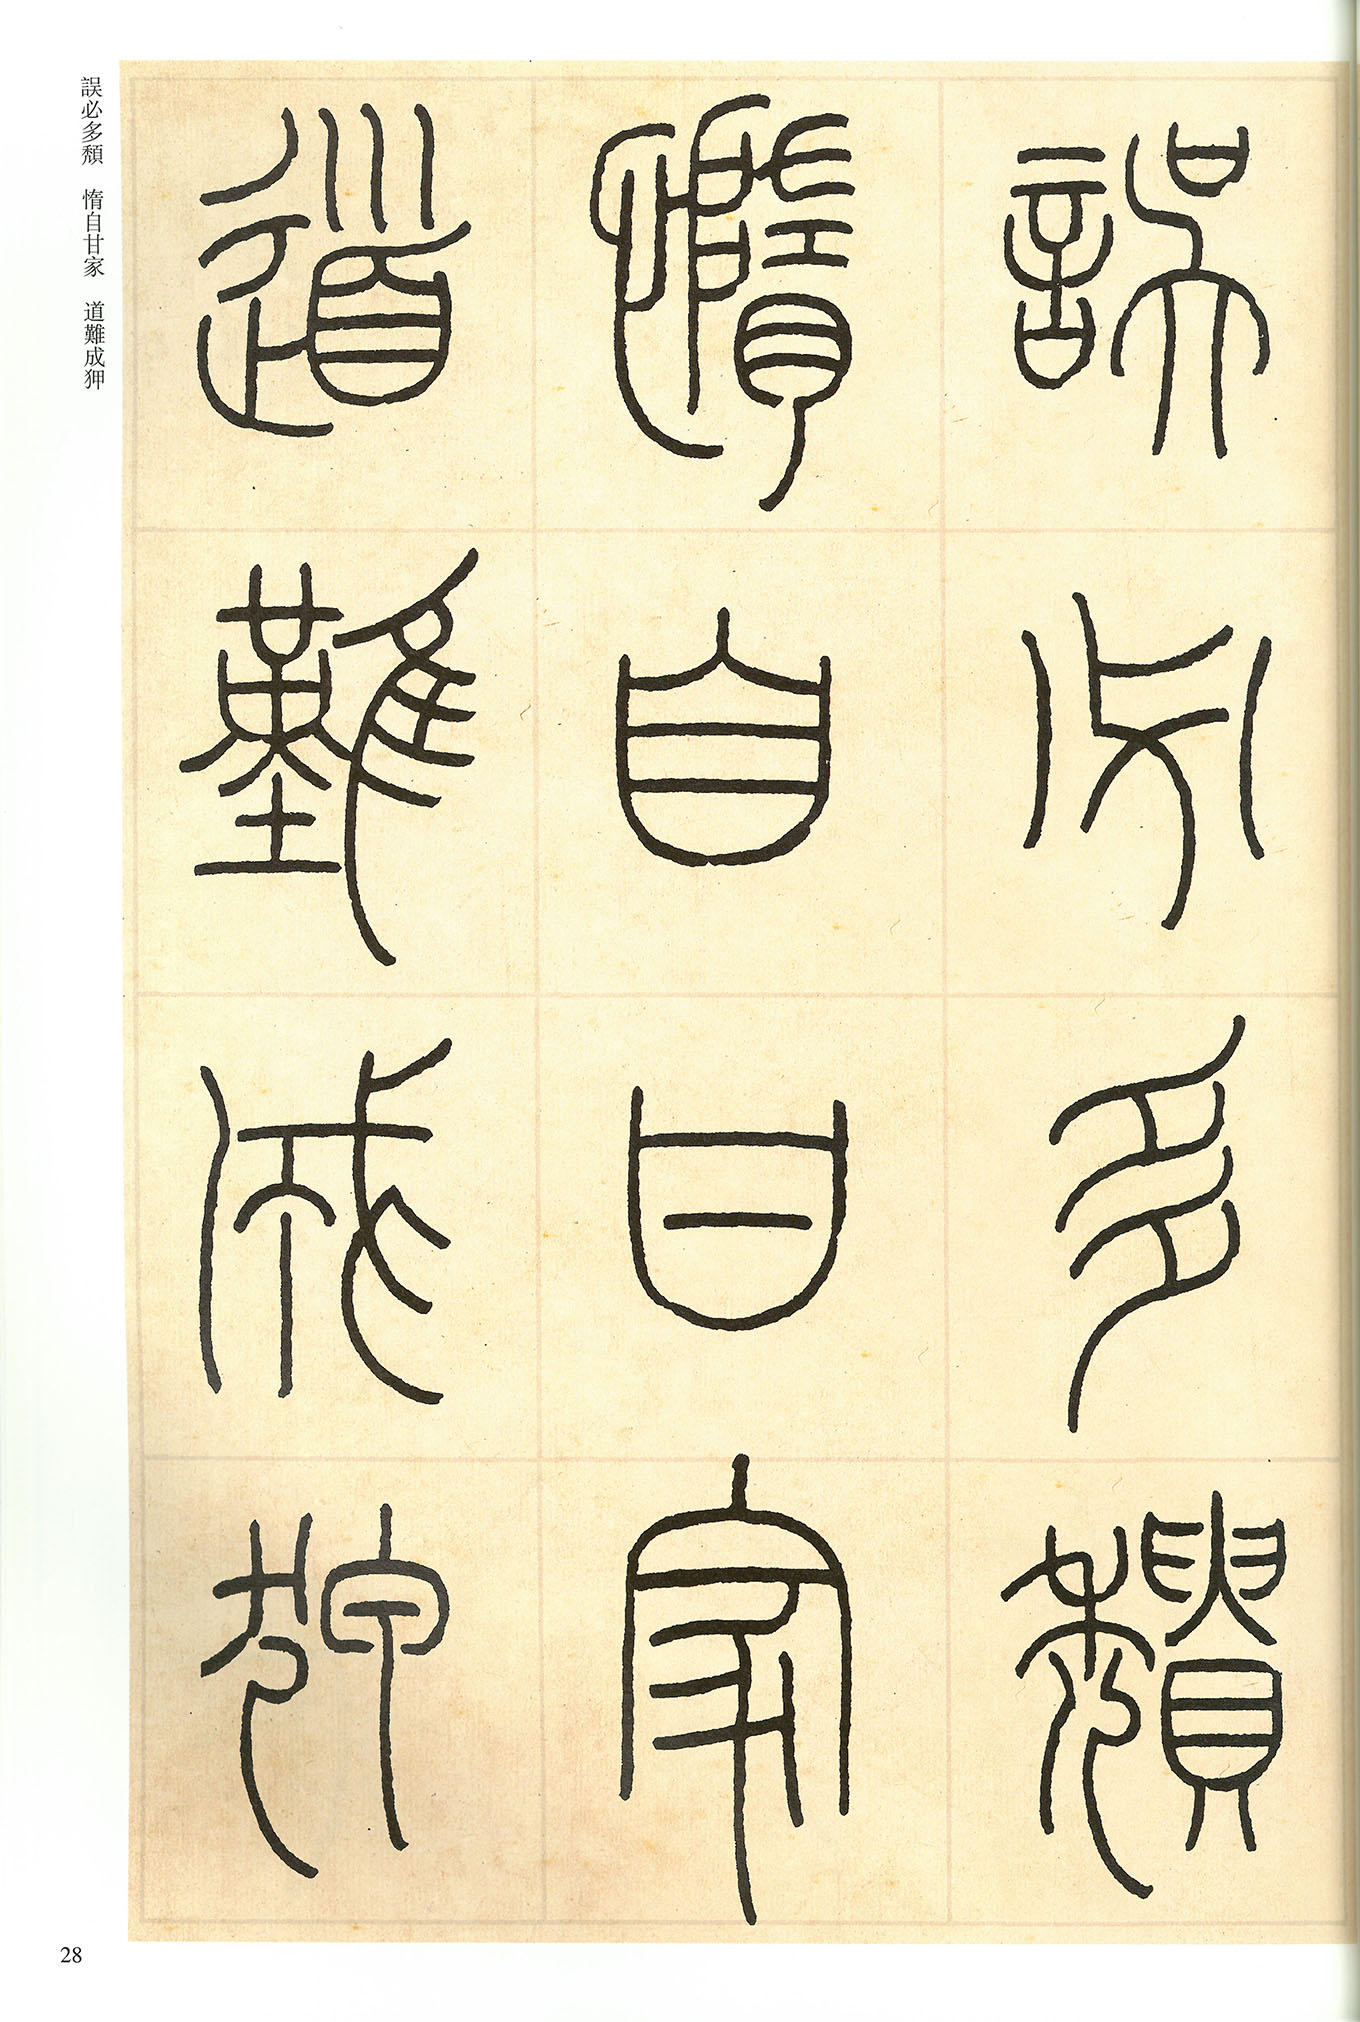 誤必多穨
惰自甘家
道難成狎
誤必多頹　惰自甘家　道難成狎
28